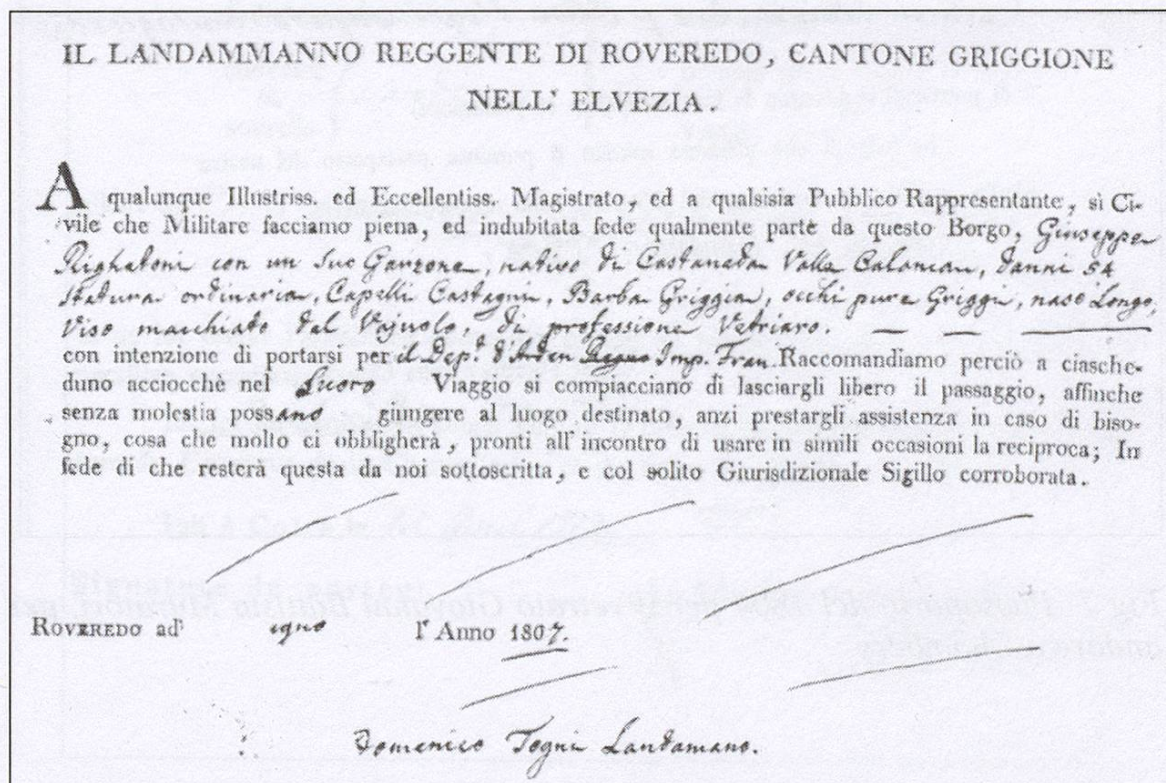 IL LANDAMMANNO REGGENTE DI ROVEREDO, CANTONE GRIGGIONE
NELL' ELVEZIA.
A qualunque Illustriss. ed Eccellentiss. Magistrato, ed a qualsisia Pubblico Rappresentante, sì Ci-
vile che Militare facciamo piena, ed indubitata fede qualmente parte da questo Borgo, Giuseppe
Righetoni con un suo Garzone, nativo di Castaneda Valle Calancan, danni 54
statura ordinaria, Capelli Castagni, Barba Griggia, occhi pure Griggi, naso Longo,
Viso macchiato dal Vajuolo, di professione Vetriaro.
con intenzione di portarsi per il Dep.t d'Arden Imp. Fran. Raccomandiamo perciò a ciasche-
duno acciocchè nel Viaggio si compiacciano di lasciargli libero il passaggio, affinche
senza molestia possano giungere al luogo destinato, anzi prestargli assistenza in caso di biso-
gno, cosa che molto ci obbligherà, pronti all' incontro di usare in simili occasioni la reciproca; In
fede di che resterà questa da noi sottoscritta, e col solito Giurisdizionale Sigillo corroborata.
ROVEREDO adì l' Anno 1807.
Domenico Togni Landamano.